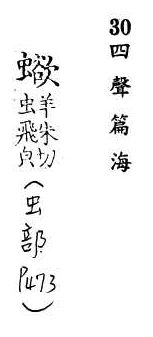 30四聲篇海
⿰虫欲
羊朱切
虫飛皃
(虫部
P473)